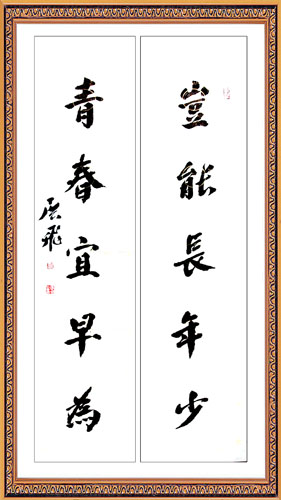 豈能長年少
青春宜早為